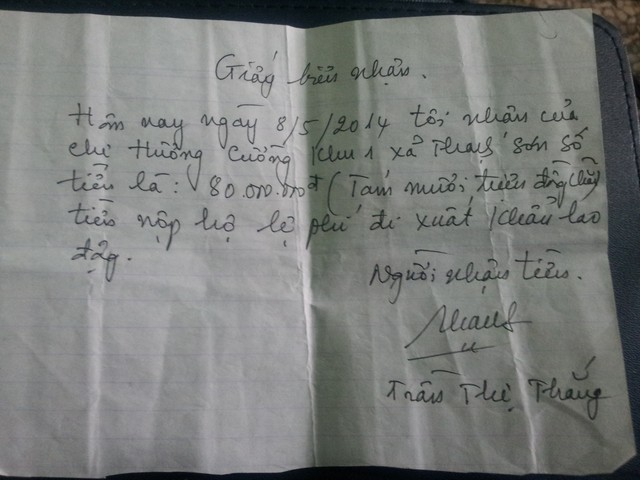 Giấy biên nhận.
Hôm nay ngày 8/5/2014 tôi nhận của
chị Hường Cường khu 1 xã Thạch sơn số
tiền là: 80.000.000đ (Tám mươi triệu đồng chẵn)
tiền nộp hộ lệ phí đi xuất khẩu lao
động.
Người nhận tiền.
Trần Thị Thắng